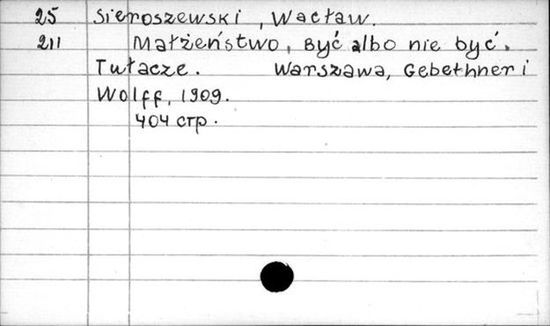 25 Sieroszewski, Wacław.
211 Małżeństwo, Być albo nie być.
Tułacze. Warszawa, Gebethner i
Wolff, 1909.
404 стр.